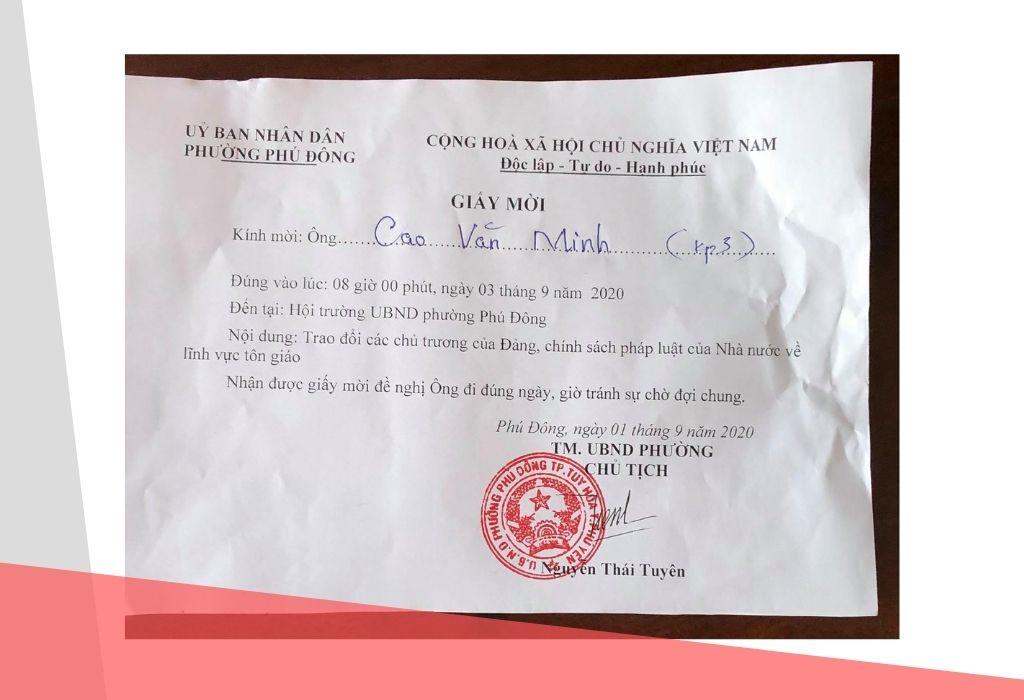 UỶ BAN NHÂN DÂN
PHƯỜNG PHÚ ĐÔNG
CỘNG HOÀ XÃ HỘI CHỦ NGHĨA VIỆT NAM
Độc lập - Tự do - Hạnh phúc
GIẤY MỜI
Kính mời: Ông......Cao.....Văn.....Minh..........(kp3)....
Đúng vào lúc: 08 giờ 00 phút, ngày 03 tháng 9 năm 2020
Đến tại: Hội trường UBND phường Phú Đông
Nội dung: Trao đổi các chủ trương của Đảng, chính sách pháp luật của Nhà nước về
lĩnh vực tôn giáo
Nhận được giấy mời đề nghị Ông đi đúng ngày, giờ tránh sự chờ đợi chung.
Phú Đông, ngày 01 tháng 9 năm 2020
TM. UBND PHƯỜNG
CHỦ TỊCH
U.B.N.D PHƯỜNG PHÚ ĐÔNG TP.TUY HÒA T.PHÚ YÊN
Nguyễn Thái Tuyên